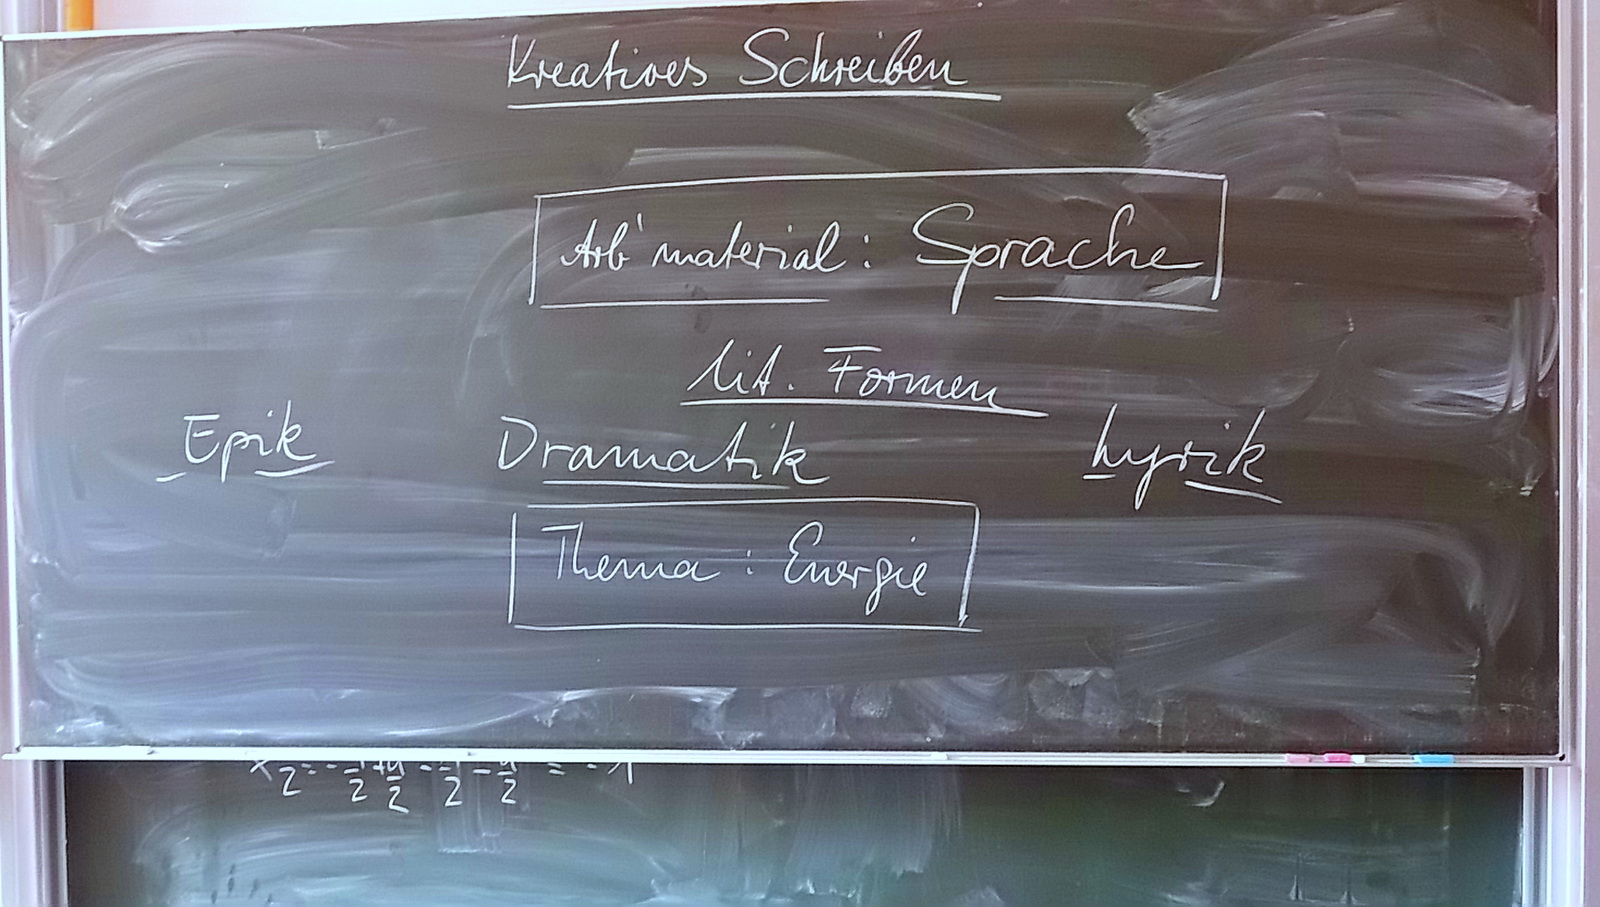 Kreatives Schreiben
Arb'material: Sprache
lit. Formen
Epik Dramatik Lyrik
Thema: Energie